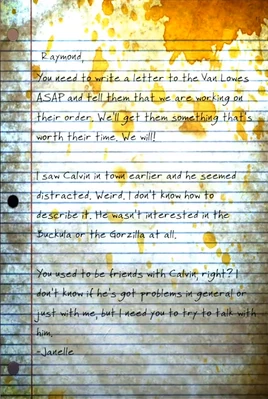 Raymond,
You need to write a letter to the Van Lowes
ASAP and tell them that we are working on
their order. We'll get them something that's
worth their time. We will!
I saw Calvin in town earlier and he seemed
distracted. Weird. I don't know how to
describe it. He wasn't interested in the
Buckula or the Gorzilla at all.
You used to be friends with Calvin, right? I
don't know if he's got problems in general or
just with me, but I need you to try to talk with
him.
-Janelle